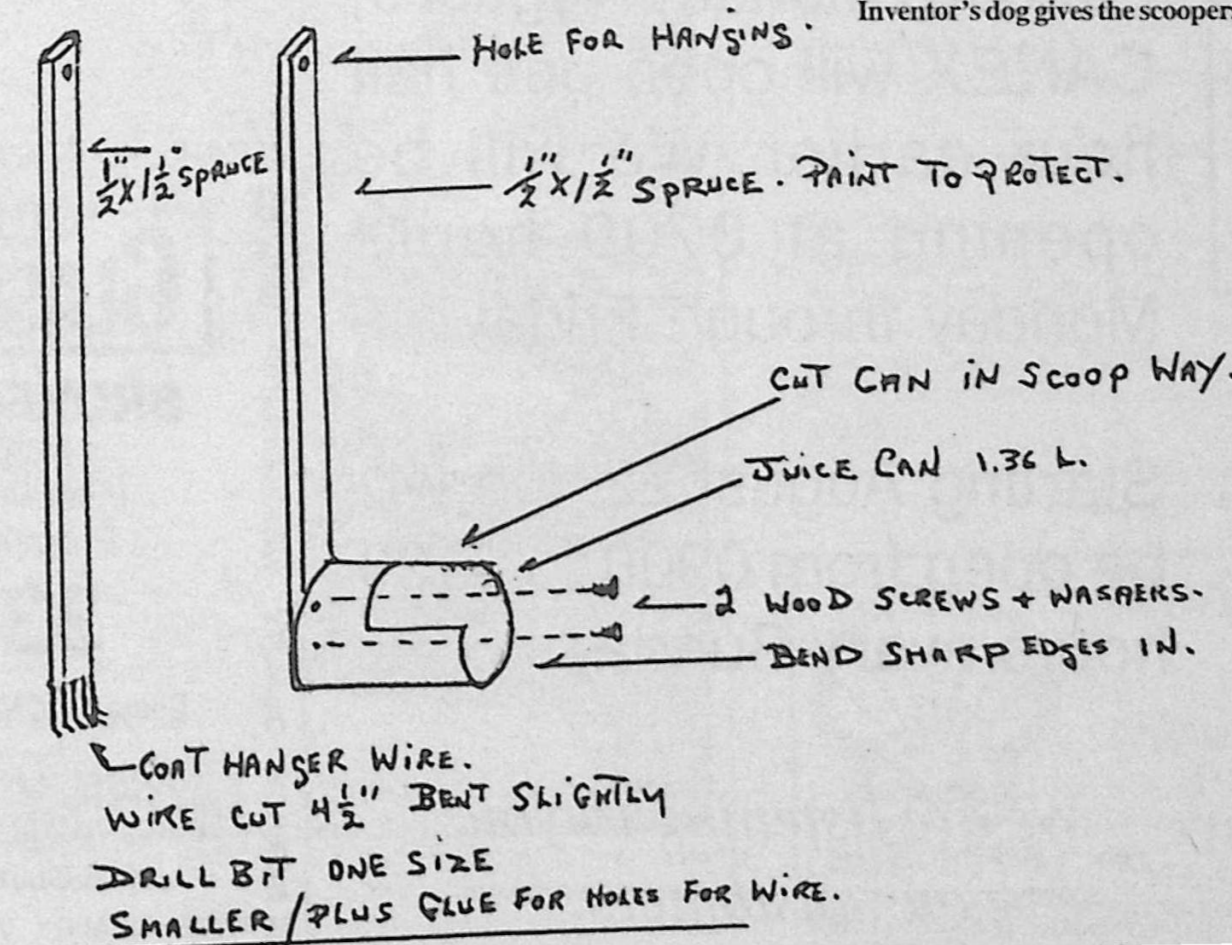 Inventor's dog gives the scooper
HOLE FOR HANGING.
1/2" X 1 1/2" SPRUCE
1/2" X 1 1/2" SPRUCE. PAINT TO PROTECT.
CUT CAN IN SCOOP WAY.
JUICE CAN 1.36 L.
2 WOOD SCREWS + WASHERS.
BEND SHARP EDGES IN.
COAT HANGER WIRE.
WIRE CUT 4 1/2" BENT SLIGHTLY
DRILL BIT ONE SIZE
SMALLER / PLUS GLUE FOR HOLES FOR WIRE.